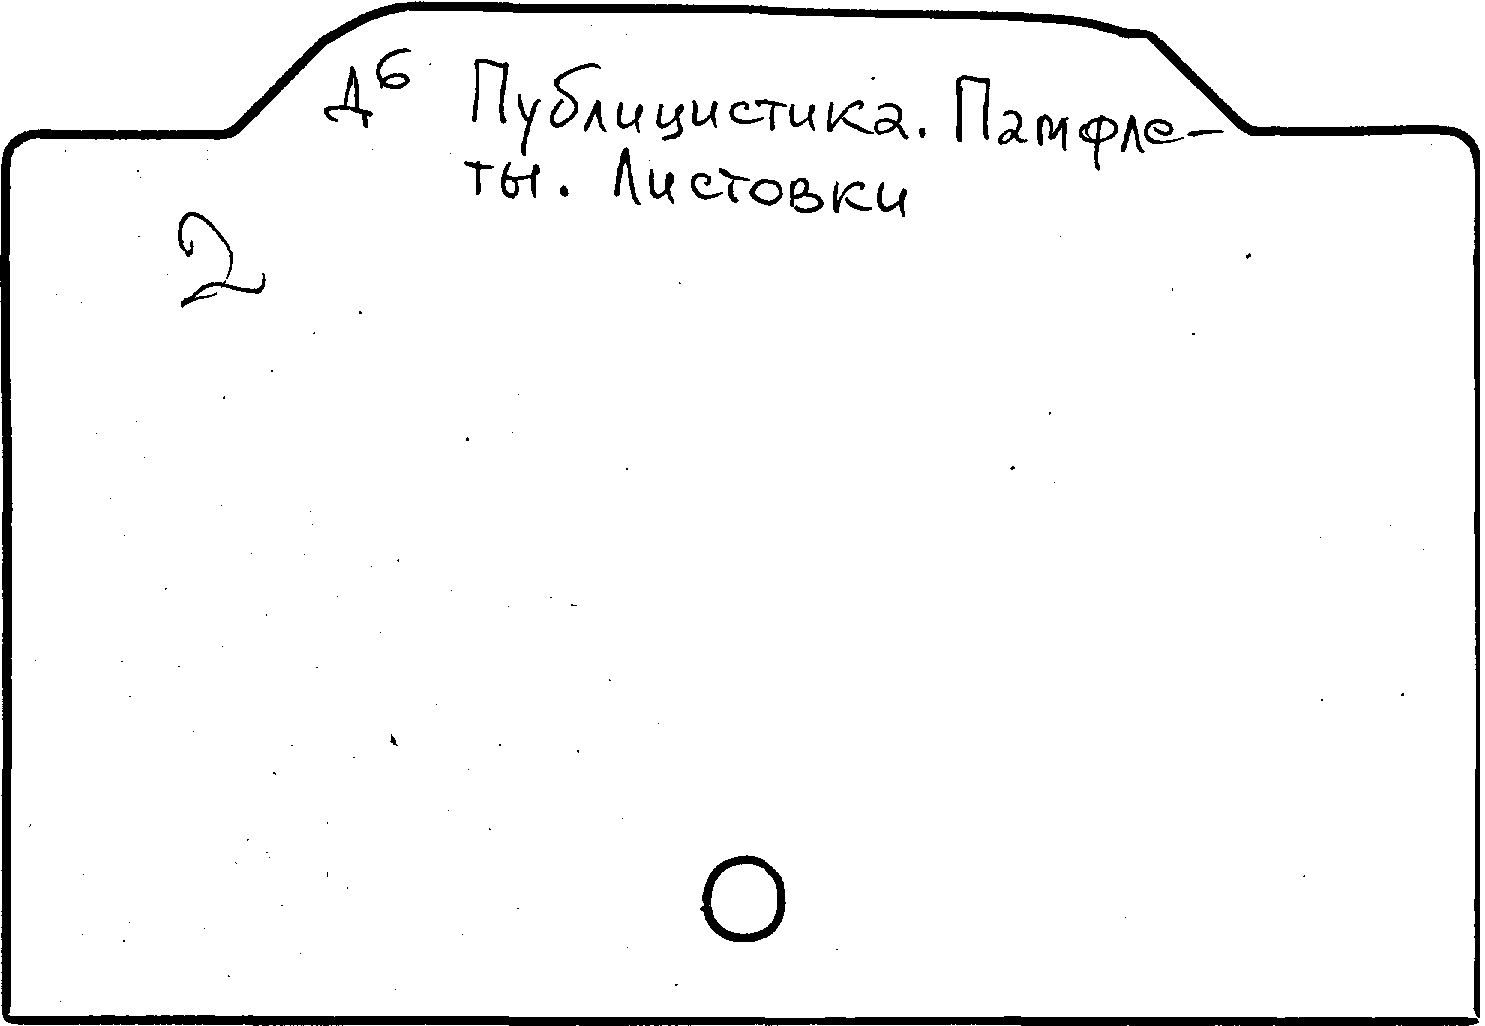 Д⁶ Публицистика. Памфле-
ты. Листовки
2